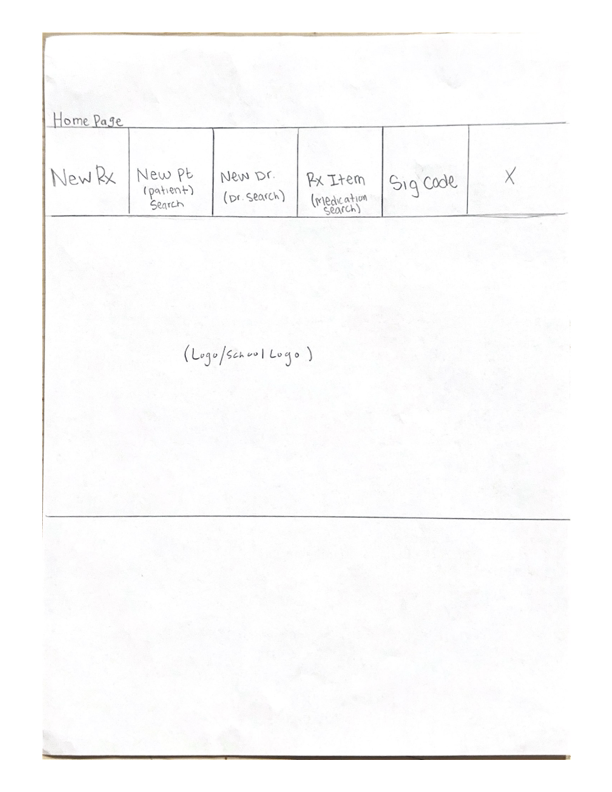 Home Page
New Rx
New Pt
(patient)
Search
New Dr.
(Dr. Search)
Rx Item
(Medication
search)
Sig Code
X
(Logo/School Logo)